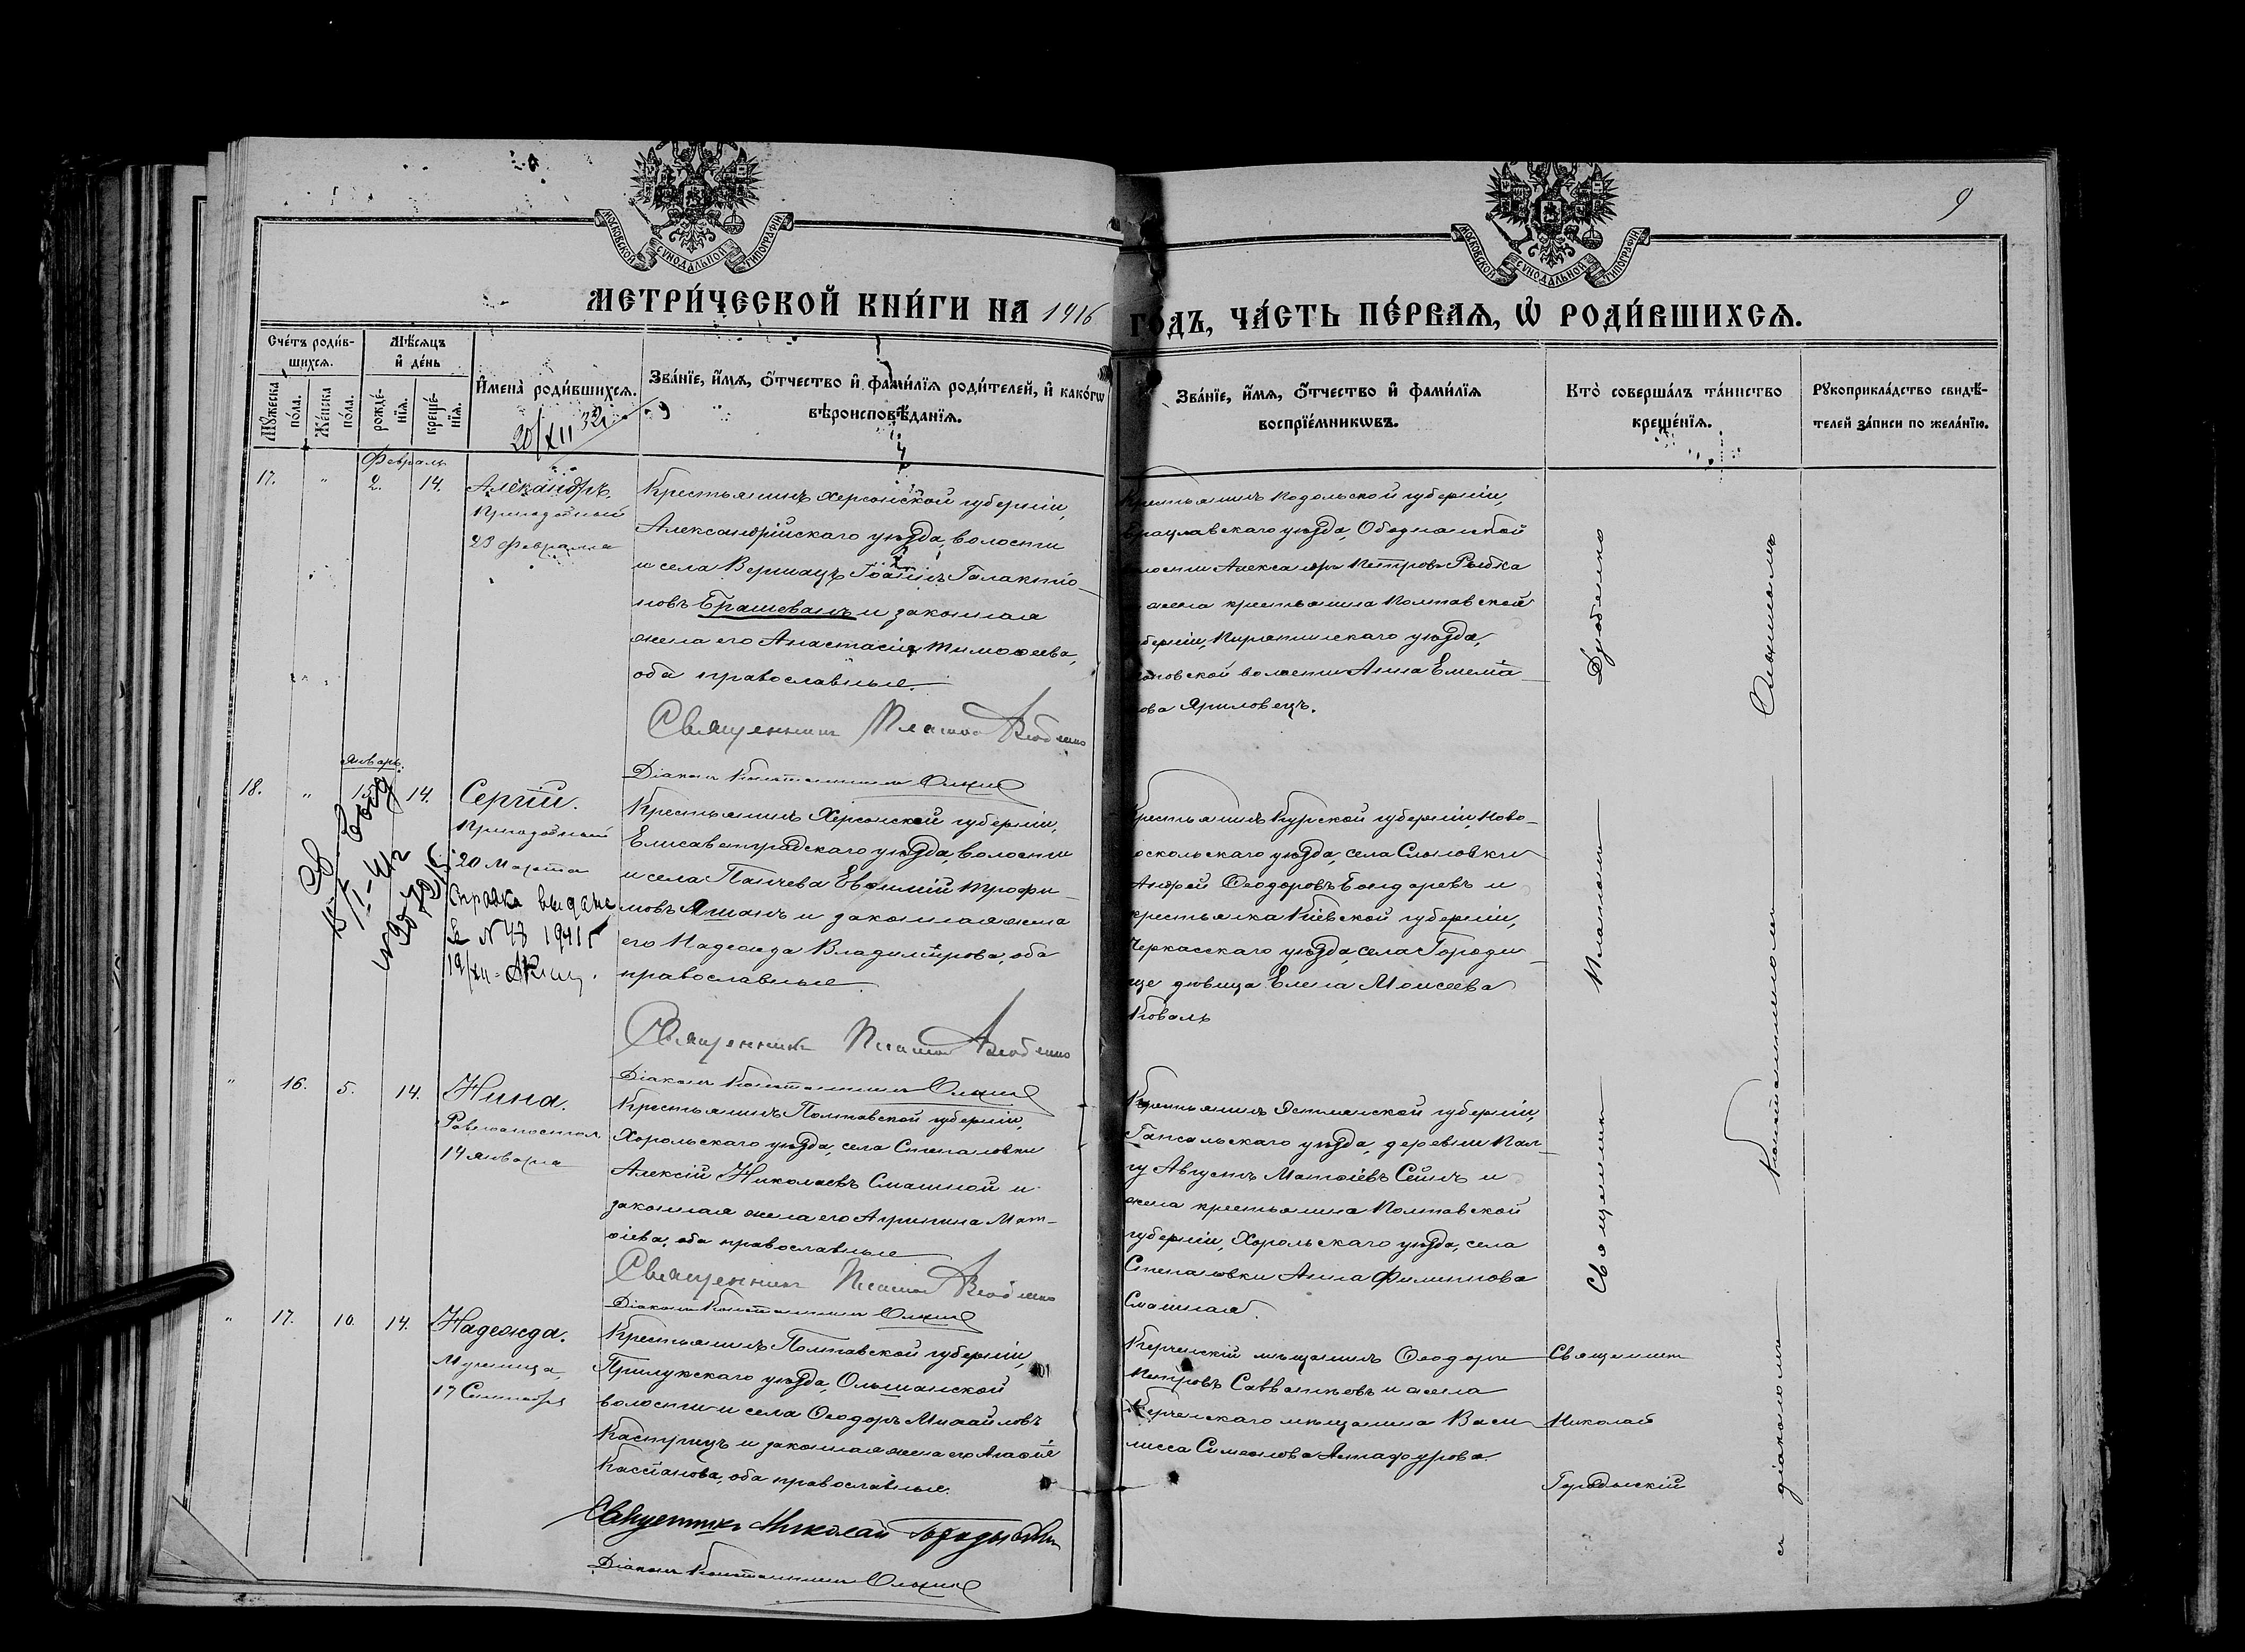 МОСКОВСКОЙ СУНОДАЛЬНОЙ ТИПОГРАФІИ
МОСКОВСКОЙ СУНОДАЛЬНОЙ ТИПОГРАФІИ
9
МЕТРИ́ЧЕСКОЙ КНИ́ГИ НА 1916 ГО́ДЪ, ЧА́СТЬ ПЕ́РВАѦ, Ѡ РОДИ́ВШИХСѦ.
Сче́тъ роди́в-
шихсѧ.
Мꙋжеска по́ла.
Же́нска по́ла.
Мѣ́сѧцъ и҆ де́нь
рожде́-
нїѧ.
креще́-
нїѧ.
И҆мена̀ роди́вшихсѧ.
20/XII 32
Зва́нїе, и҆́мѧ, ѻ҆́тчество и҆ фами́лїѧ роди́телей, и҆ како́гѡ
вѣроисповѣ́данїѧ.
Зва́нїе, и҆́мѧ, ѻ҆́тчество и҆ фами́лїѧ
воспрїе́мникѡвъ.
Кто̀ соверша́лъ та́инство
креще́нїѧ.
Рꙋкоприкла́дство свидѣ́-
телей за́писи по жела́нїю.
Февраль
17. " 2. 14. Александръ.
Преподобный
23 Февраля
Крестьянинъ Херсонской губерніи,
Александрійскаго уѣзда, волости
и села Вершацъ Іоаннъ Галактіо-
новъ Брашеванъ и законная
жена его Анастасія Тимоѳеева,
оба православные.
Священникъ Платонъ Дзюбенко
Діаконъ Константинъ
Крестьянинъ Подольской губерніи,
Брацлавскаго уѣзда, Ободнянской
волости Александръ Петровъ Рыбка
и жена крестьянина Полтавской
губерніи, Пирятинскаго уѣзда,
волости Анна Емелія-
нова Яриловецъ.
Январь.
18. " 15. 14. Сергій.
Преподобный
20 Марта
Справка выдана
№ 48 1941 г
19/XII
15/I-41 г
Крестьянинъ Херсонской губерніи,
Елисаветградскаго уѣзда, волости
и села Панчева Евѳимій Трофи-
мовъ и законная жена
его Надежда Владимірова, оба
православные
Священникъ Платонъ Дзюбенко
Діаконъ Константинъ
Крестьянинъ Курской губерніи, Ново-
оскольскаго уѣзда, села Слоновки
Андрей Ѳеодоровъ Бондаревъ и
крестьянка Кіевской губерніи,
Черкасскаго уѣзда, села Городи-
ще дѣвица Елена Моисеева
Коваль
" 16. 5. 14. Нина.
Равноапостол.
14 Января
Крестьянинъ Полтавской губерніи,
Хорольскаго уѣзда, села Степановки
Алексій Николаевъ Смашной и
законная жена его Агрипина Мат-
ѳіева, оба православные
Священникъ Платонъ Дзюбенко
Діаконъ Константинъ
Крестьянинъ Эстлянской губерніи,
Гапсальскаго уѣзда, деревни Пал-
гу Августъ Матѳіевъ Сеинъ и
жена крестьянина Полтавской
губерніи, Хорольскаго уѣзда, села
Степановки Анна Филиппова
Смашная.
" 17. 10. 14. Надежда.
Мученица
17 Сентября
Крестьянинъ Полтавской губерніи,
Прилукскаго уѣзда, Ольшанской
волости и села Ѳеодоръ Михайловъ
Кастрицъ и законная жена его Агафія
Кассіанова, оба православные.
Священникъ Николай Городыскій
Діаконъ Константинъ
Керченскій мѣщанинъ Ѳеодоръ
Петровъ Савватѣевъ и жена
Керченскаго мѣщанина Васи-
лисса Симеонова Астафурова.
Священникъ
Николай
Городыскій
Священникъ Платонъ Дзюбенко
съ діакономъ Константиномъ